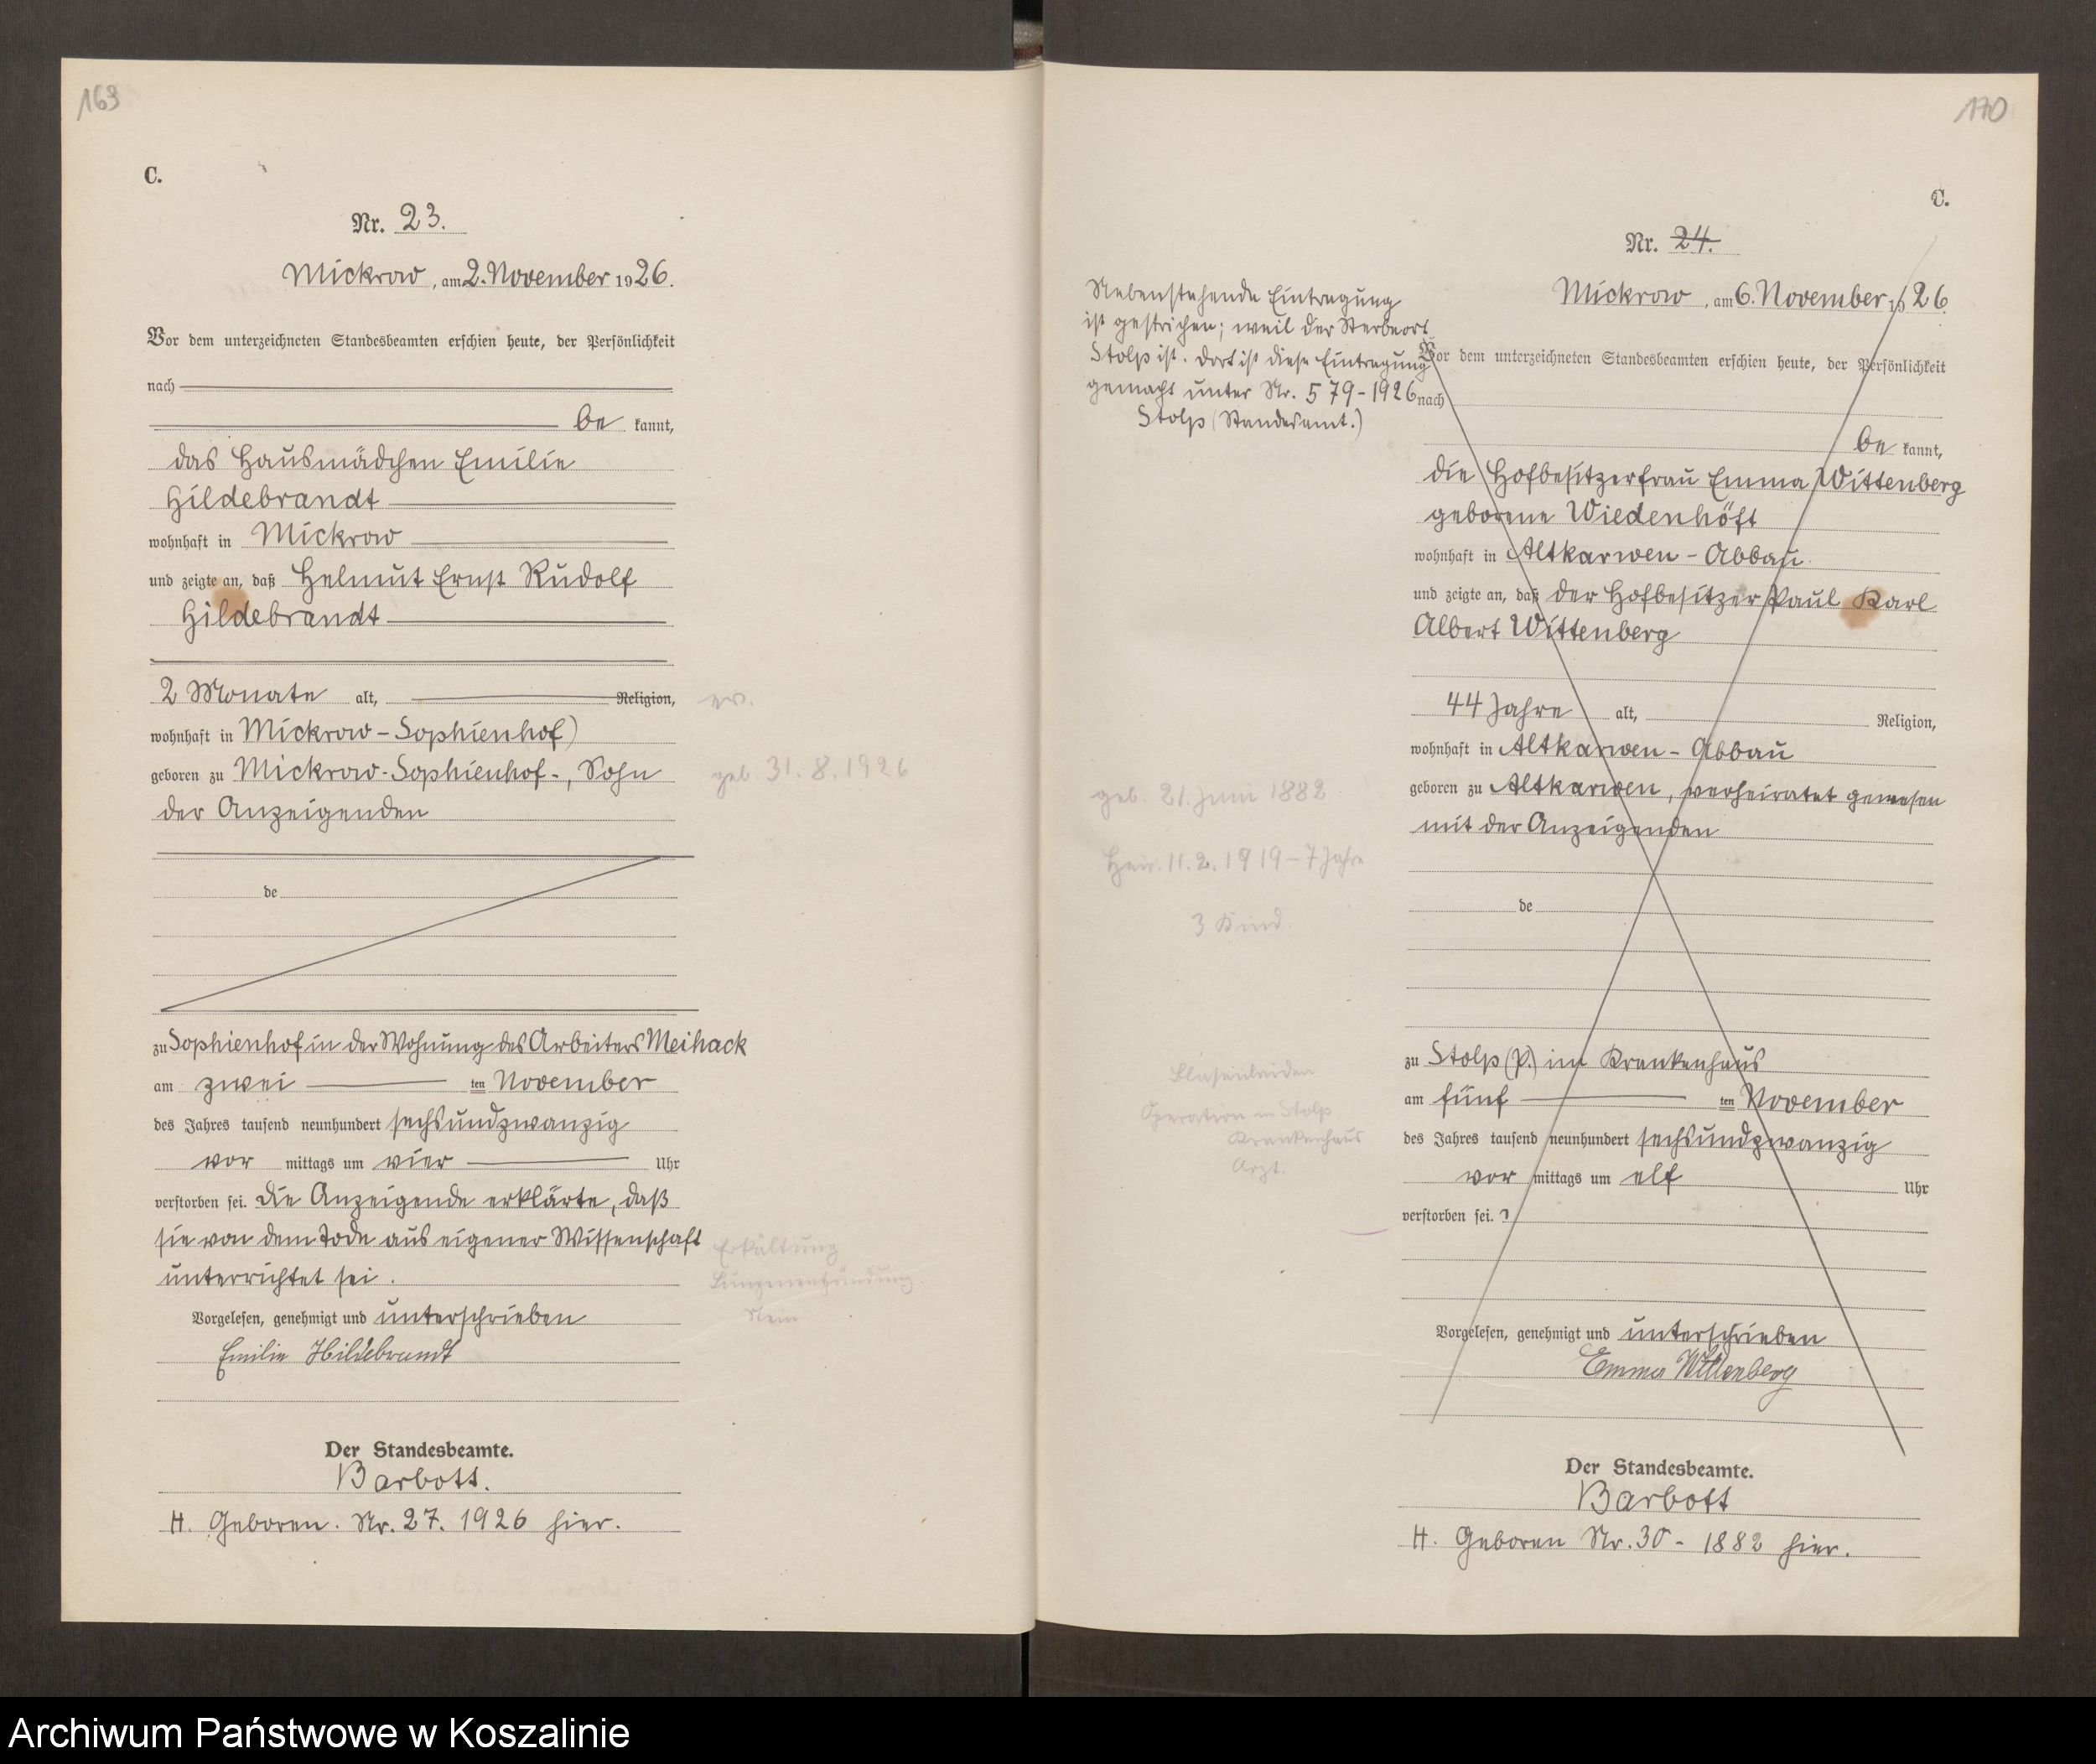 169
C.
Nr. 23.
Mickrow, am 2. November 1926.
Vor dem unterzeichneten Standesbeamten erschien heute, der Persönlichkeit
nach
be kannt,
das Hausmädchen Emilie
Hildebrandt
wohnhaft in Mickrow
und zeigte an, daß Helmut Ernst Rudolf
Hildebrandt
2 Monate alt, Religion,
ev.
wohnhaft in Mickrow-Sophienhof)
geboren zu Mickrow-Sophienhof-, Sohn
geb. 31.8.1926
der Anzeigenden
de
zu Sophienhof in der Wohnung des Arbeiters Meihack
am zwei ten November
des Jahres tausend neunhundert sechsundzwanzig
vor mittags um vier Uhr
verstorben sei. Die Anzeigende erklärte, daß
sie von dem Tode aus eigener Wissenschaft
unterrichtet sei.
Erkältung
Lungenentzündung
Nein
Vorgelesen, genehmigt und unterschrieben
Emilie Hildebrandt
Der Standesbeamte.
Barbott.
H. Geboren. Nr. 27. 1926 hier.
170
C.
Nr. 24.
Mickrow, am 6. November 1926.
Nebenstehende Eintragung
ist gestrichen; weil der Sterbeort
Stolp ist. Dort ist diese Eintragung
gemacht unter Nr. 579-1926
Stolp (Standesamt.)
Vor dem unterzeichneten Standesbeamten erschien heute, der Persönlichkeit
nach
be kannt,
die Hofbesitzerfrau Emma Wittenberg
geborene Wiedenhöft
wohnhaft in Altkarwen-Abbau
und zeigte an, daß der Hofbesitzer Paul Karl
Albert Wittenberg
44 Jahre alt, Religion,
wohnhaft in Altkarwen-Abbau
geboren zu Altkarwen, verheiratet gewesen
geb. 21. Juni 1882
mit der Anzeigenden
Heir. 11.2.1919-7 Jahre
de
3 Kind.
zu Stolp (P.) im Krankenhaus
Blasenleiden
am fünf ten November
Operation in Stolp
Krankenhaus
Arzt.
des Jahres tausend neunhundert sechsundzwanzig
vor mittags um elf Uhr
verstorben sei.
Vorgelesen, genehmigt und unterschrieben
Emma Wittenberg
Der Standesbeamte.
Barbott
H. Geboren Nr. 30-1882 hier.
Archiwum Państwowe w Koszalinie